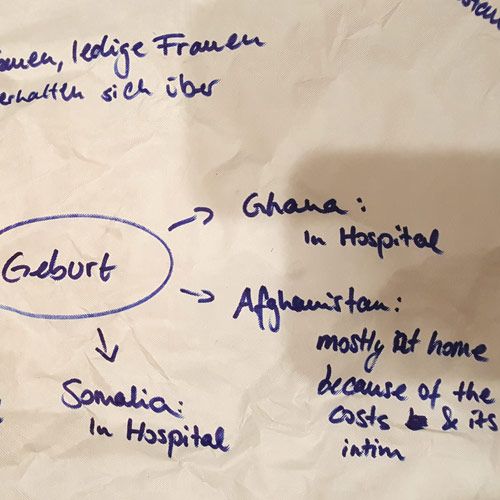 ledige Frauen
sich über
Geburt
Ghana:
in Hospital
Afghanistan:
mostly at home
because of the
costs & its
intim
Somalia:
in Hospital